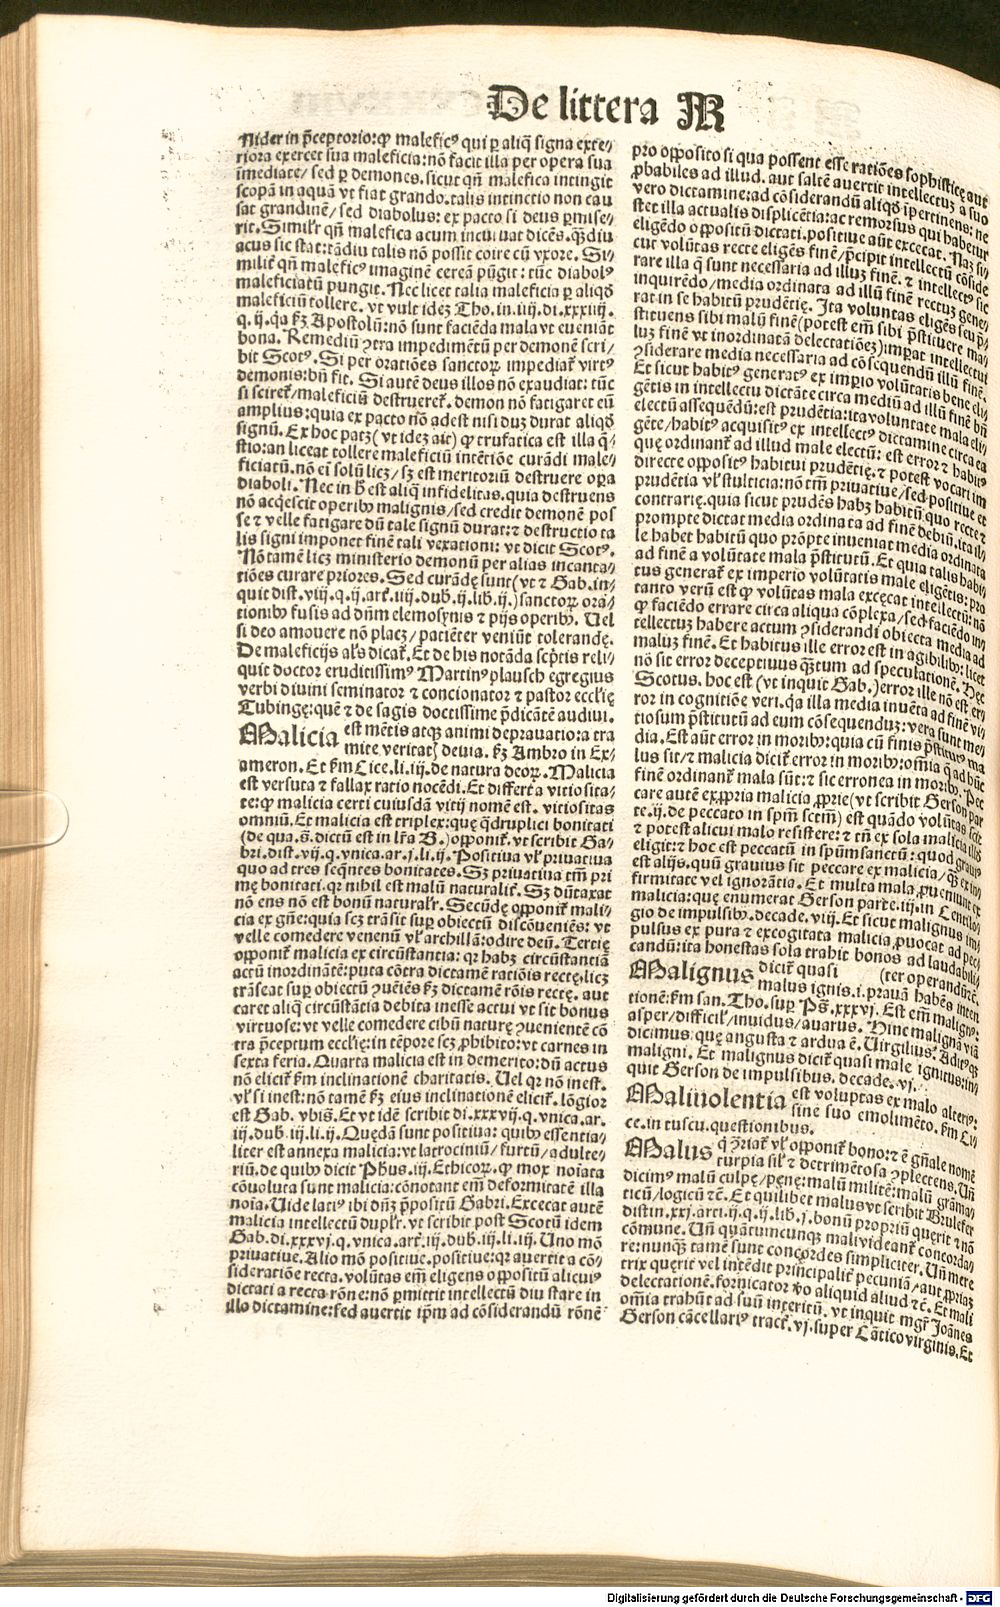 De littera M
Nider in p̃ceptorio: ꝙ malefic⁹ qui ꝑ aliq̃ signa exte/
riora exercet sua maleficia: nõ facit illa per opera sua
ĩmediate/ sed ꝑ demones. sicut qñ malefica intingit
scopã in aquã vt fiat grando. talis intinctio non cau
sat grandinẽ/ sed diabolus: ex pacto si deus ꝑmise/
rit. Similr̃ qñ malefica acum incuruat dicẽs. ꝙ̃diu
acus sic stat: tãdiu talis nõ possit coire cũ vxore. Si/
milit̃ qñ malefic⁹ imaginẽ cereã pũgit: tũc diabol⁹
maleficiatũ pungit. Nec licet talia maleficia ꝑ aliqd̃
maleficiũ tollere. vt vult idẽ Tho. in. iiij. di. xxxiiij.
q. ij. q̃a ẜm Apostolũ: nõ sunt faciẽda mala vt eueniãt
bona. Remediũ ꝯtra impedimẽtũ per demonẽ scri/
bit Scot⁹. Si per oratiões sanctoꝝ impediat̃ virt⁹
demonis: bñ fit. Si autẽ deus illos nõ exaudiat: tũc
si sciret̃/ maleficiũ destrueret̃. demon nõ fatigaret eũ
amplius: quia ex pacto nõ adest nisi duꝫ durat aliqd̃
signũ. Ex hoc patꝫ (vt ideꝫ ait) ꝙ trufatica est illa q̃/
stio: an liceat tollere maleficiũ intẽtiõe curãdi male/
ficiatũ. nõ em̃ solũ licꝫ/ sꝫ est meritoriũ destruere oꝑa
diaboli. Nec in h̃ est aliq̃ infidelitas. quia destruens
nõ acq̃escit operibꝰ malignis/ sed credit demonẽ pos
se ⁊ velle fatigare dũ tale signũ durat: ⁊ destructio ta
lis signi imponet finẽ tali vexationi: vt dicit Scot⁹.
Nõ tamẽ licꝫ ministerio demonũ per alias incanta/
tiões curare priores. Sed curãdę sunt (vt ⁊ Gab. in/
quit dist. viij. q. ij. art̃. iiij. dub. ij. lib. ij.) sanctoꝝ ora/
tionibꝰ fusis ad dñm elemosynis ⁊ pijs operibꝰ. Uel
si deo amouere nõ placꝫ/ paciẽter veniũt tolerandę.
De maleficijs al's dicat̃. Et de his notãda scp̃tis reli/
quit doctor eruditissim⁹ Martin⁹ plausch egregius
verbi diuini seminator ⁊ concionator ⁊ pastor eccl'ię
Tubingę: quẽ ⁊ de sagis doctissime p̃dicãtẽ audiui.
Malicia est mẽtis atqꝫ animi deprauatio: a tra
mite veritat̃ deuia. ẜm Ambro in Ex/
ameron. Et ẜm Cice. li. iij. de natura deoꝝ. Malicia
est versuta ⁊ fallax ratio nocẽdi. Et differt a viciosita/
te: ꝙ malicia certi cuiusdã vitij nomẽ est. vitiositas
omniũ. Et malicia est triplex: quę q̃druplici bonitati
(de qua. s. dictũ est in lr̃a B.) opponit̃. vt scribit Ga/
bri. dist. vij. q. vnica. ar. j. li. ij. Positiua vl' priuatiua
quo ad tres seq̃ntes bonitates. Sꝫ priuatiua tm̃ pri
mę bonitati. qr nihil est malũ naturalit̃. Sꝫ dũtaxat
nõ ens nõ est bonũ naturalr̃. Secũdę opponit̃ mali/
cia ex gñe: quia scꝫ trãsit suꝑ obiectũ discõueniẽs: vt
velle comedere venenũ vl' archillã: odire deũ. Tertię
opponit̃ malicia ex circũstantia: qꝛ habꝫ circũstantiã
actũ inordinãtẽ: puta cõtra dictamẽ ratiõis rectę. licꝫ
trãseat suꝑ obiectũ ꝯueniẽs ẜm dictamẽ rõis rectę. aut
caret aliq̃ circũstãtia debita inesse actui vt sit bonus
virtuose: vt velle comedere cibũ naturę ꝯuenientẽ cõ
tra p̃ceptum eccl'ię: in tẽpore scꝫ ꝓhibito: vt carnes in
sexta feria. Quarta malicia est in demerito: dũ actus
nõ elicit̃ ẜm inclinationẽ charitatis. Uel qr nõ inest.
vl' si inest: nõ tamẽ ẜm eius inclinationẽ elicit̃. lõgior
est Gab. vbi s. Et vt idẽ scribit di. xxxvij. q. vnica. ar.
iij. dub. iij. li. ij. Quędã sunt positiua: quibꝰ essentia/
liter est annexa malicia: vt latrociniũ/ furtũ/ adulte/
riũ. de quibꝰ dicit Ph̃us. iij. Ethicoꝝ. ꝙ mox noĩata
cõuoluta sunt malicia: cõnotant em̃ deformitatẽ illa
noĩa. Uide lati⁹ ibi dñꝫ p̃positũ Gabri. Excecat autẽ
malicia intellectũ duplr̃. vt scribit post Scotũ idem
Gab. di. xxxvj. q. vnica. art̃. iij. dub. iij. li. iij. Uno mõ
priuatiue. Alio mõ positiue. positiue: qr auertit a cõ/
sideratiõe recta. volũtas em̃ eligens oppositũ alicui⁹
dictati a recta rõne: nõ ꝑmittit intellectũ diu stare in
illo dictamine: sed auertit ip̃m ad cõsiderandũ rõnẽ
pro opposito si qua possent esse ratiões sophisticę aut
ꝓbabiles ad illud. aut saltẽ auertit intellectuꝫ a suo
vero dictamine: ad cõsiderandũ aliqd̃ ĩpertinens: ne
stet illa actualis displicẽtia: ac remorsus qui habetur
eligẽdo oppositũ dictati. positiue aũt excecat. Naꝫ si/
cut volũtas recte eligẽs finẽ/ p̃cipit intellectũ cõside
rare illa q̃ sunt necessaria ad illuꝫ finẽ. ⁊ intellect⁹ sic
inquirẽdo/ media ordinata ad illũ finẽ rectus gene/
rat in se habitũ prudẽtię. Ita voluntas eligẽs seu p̃/
stituens sibi malũ finẽ (potest em̃ sibi p̃stituere ma/
luꝫ finẽ vt inordinatã delectationẽ) imperat intellectui
ꝯsiderare media necessaria ad cõsequendũ illũ finẽ.
Et sicut habit⁹ generat⁹ ex impio volũtatis bene eli/
gẽtis in intellectu dictãte circa mediũ ad illũ finẽ bñ
electũ assequẽdũ: est prudẽtia: ita voluntate mala eli/
gẽte/ habit⁹ acquisit⁹ ex intellect⁹ dictamine circa ea
quę ordinant̃ ad illud male electũ: est error ⁊ habit⁹
directe opposit⁹ habitui prudẽtię. ⁊ potest vocari im
prudẽtia vl' stulticia: nõ tm̃ priuatiue/ sed positiue et
contrarię. quia sicut prudẽs habꝫ habitũ quo recte ⁊
prompte dictat media ordinata ad finẽ debitũ. ita il/
le habet habitũ quo prõpte inueniat media ordinata
ad finẽ a volũtate mala p̃stitutũ. Et quia talis habi/
tus generat̃ ex imperio volũtatis male eligẽtis: pro
tanto verũ est ꝙ volũtas mala excęcat intellectũ: nõ
ꝙ faciẽdo errare circa aliqua cõplexa/ sed faciẽdo in/
tellectuꝫ habere actum ꝯsiderandi obiecta media ad
maluꝫ finẽ. Et habitus ille error est in agibilibꝰ: licet
nõ sit error deceptiuus ꝙ̃tum ad speculationẽ. Hęc
Scotus. hoc est (vt inquit Gab.) error ille nõ est er/
ror in cognitiõe veri. q̃a illa media inuẽta ad finẽ vi/
tiosum p̃stitutũ ad eum cõsequenduꝫ: vera sunt me/
dia. Est aũt error in moribꝰ: quia cũ finis p̃stitut⁹ ma
lus sit/ ⁊ malicia dicit̃ error in moribꝰ: om̃ia q̃ ad hũc
finẽ ordinant̃ mala sũt: ⁊ sic erronea in moribꝰ. Pec
care autẽ ex ꝓpria malicia ꝓprie (vt scribit Gerson par
te. ij. de peccato in sp̃m sctm̃) est quãdo volũtas scit
⁊ potest alicui malo resistere: ⁊ tñ ex sola malicia illud
eligit: ⁊ hoc est peccatũ in spũmsanctũ: quod grauius
est alijs. quũ grauius sit peccare ex malicia/ ꝙ̃ ex in/
firmitate vel ignorãtia. Et multa mala ꝓueniunt ex
malicia: quę enumerat Gerson parte. iij. in Centilo/
gio de impulsibꝰ. decade. viij. Et sicut malignus im/
pulsus ex pura ⁊ excogitata malicia ꝓuocat ad pec/
candũ: ita honestas sola trahit bonos ad laudabili/
Malignus dicit̃ quasi (ter operandũ ⁊c̃.
malus ignis. i. prauã habẽs inten
tionẽ: ẜm san. Tho. suꝑ Ps̃. xxxvj. Est em̃ malign⁹:
asper/ difficil'/ inuidus/ auarus. Hinc malignã viã
dicimus quę angusta ⁊ ardua ẽ. Uirgilius. Adit⁹qꝫ
maligni. Et malignus dicit̃ quasi male ignitus: in/
quit Gerson de impulsibus. decade. vj.
Maliuolentia est voluptas ex malo alteri⁹:
sine suo emolumẽto. ẜm Ci/
ce. in tuscu. questionibus.
Malus q̃ ꝯriat̃ vl' opponit̃ bono: ⁊ ẽ gñale nomẽ
turpia sil' ⁊ detrimẽtosa ꝯplectens. Uñ
dicim⁹ malũ culpę/ pęnę: malũ militẽ: malũ grãma/
ticũ/ logicũ ⁊c̃. Et quilibet malus vt scribit Brulefer
distin. xxj. arti. ij. q. ij. lib. j. bonũ propriũ querit ⁊ nõ
cõmune. Uñ quãtumcunqꝫ mali videant̃ concorda/
re: nunqꝫ̃ tamẽ sunt concordes simpliciter. Uñ mere
trix querit vel intẽdit principalit̃ pecuniã/ aut ꝓpriaꝫ
delectationẽ. fornicator ꝟo aliquid aliud ⁊c̃. Et mali
om̃ia trahũt ad suũ interitũ. vt inquit mgr̃ Joãnes
Gerson cãcellari⁹ tract̃. vj. super Cãtico virginis. Et
Digitalisierung gefördert durch die Deutsche Forschungsgemeinschaft - DFG